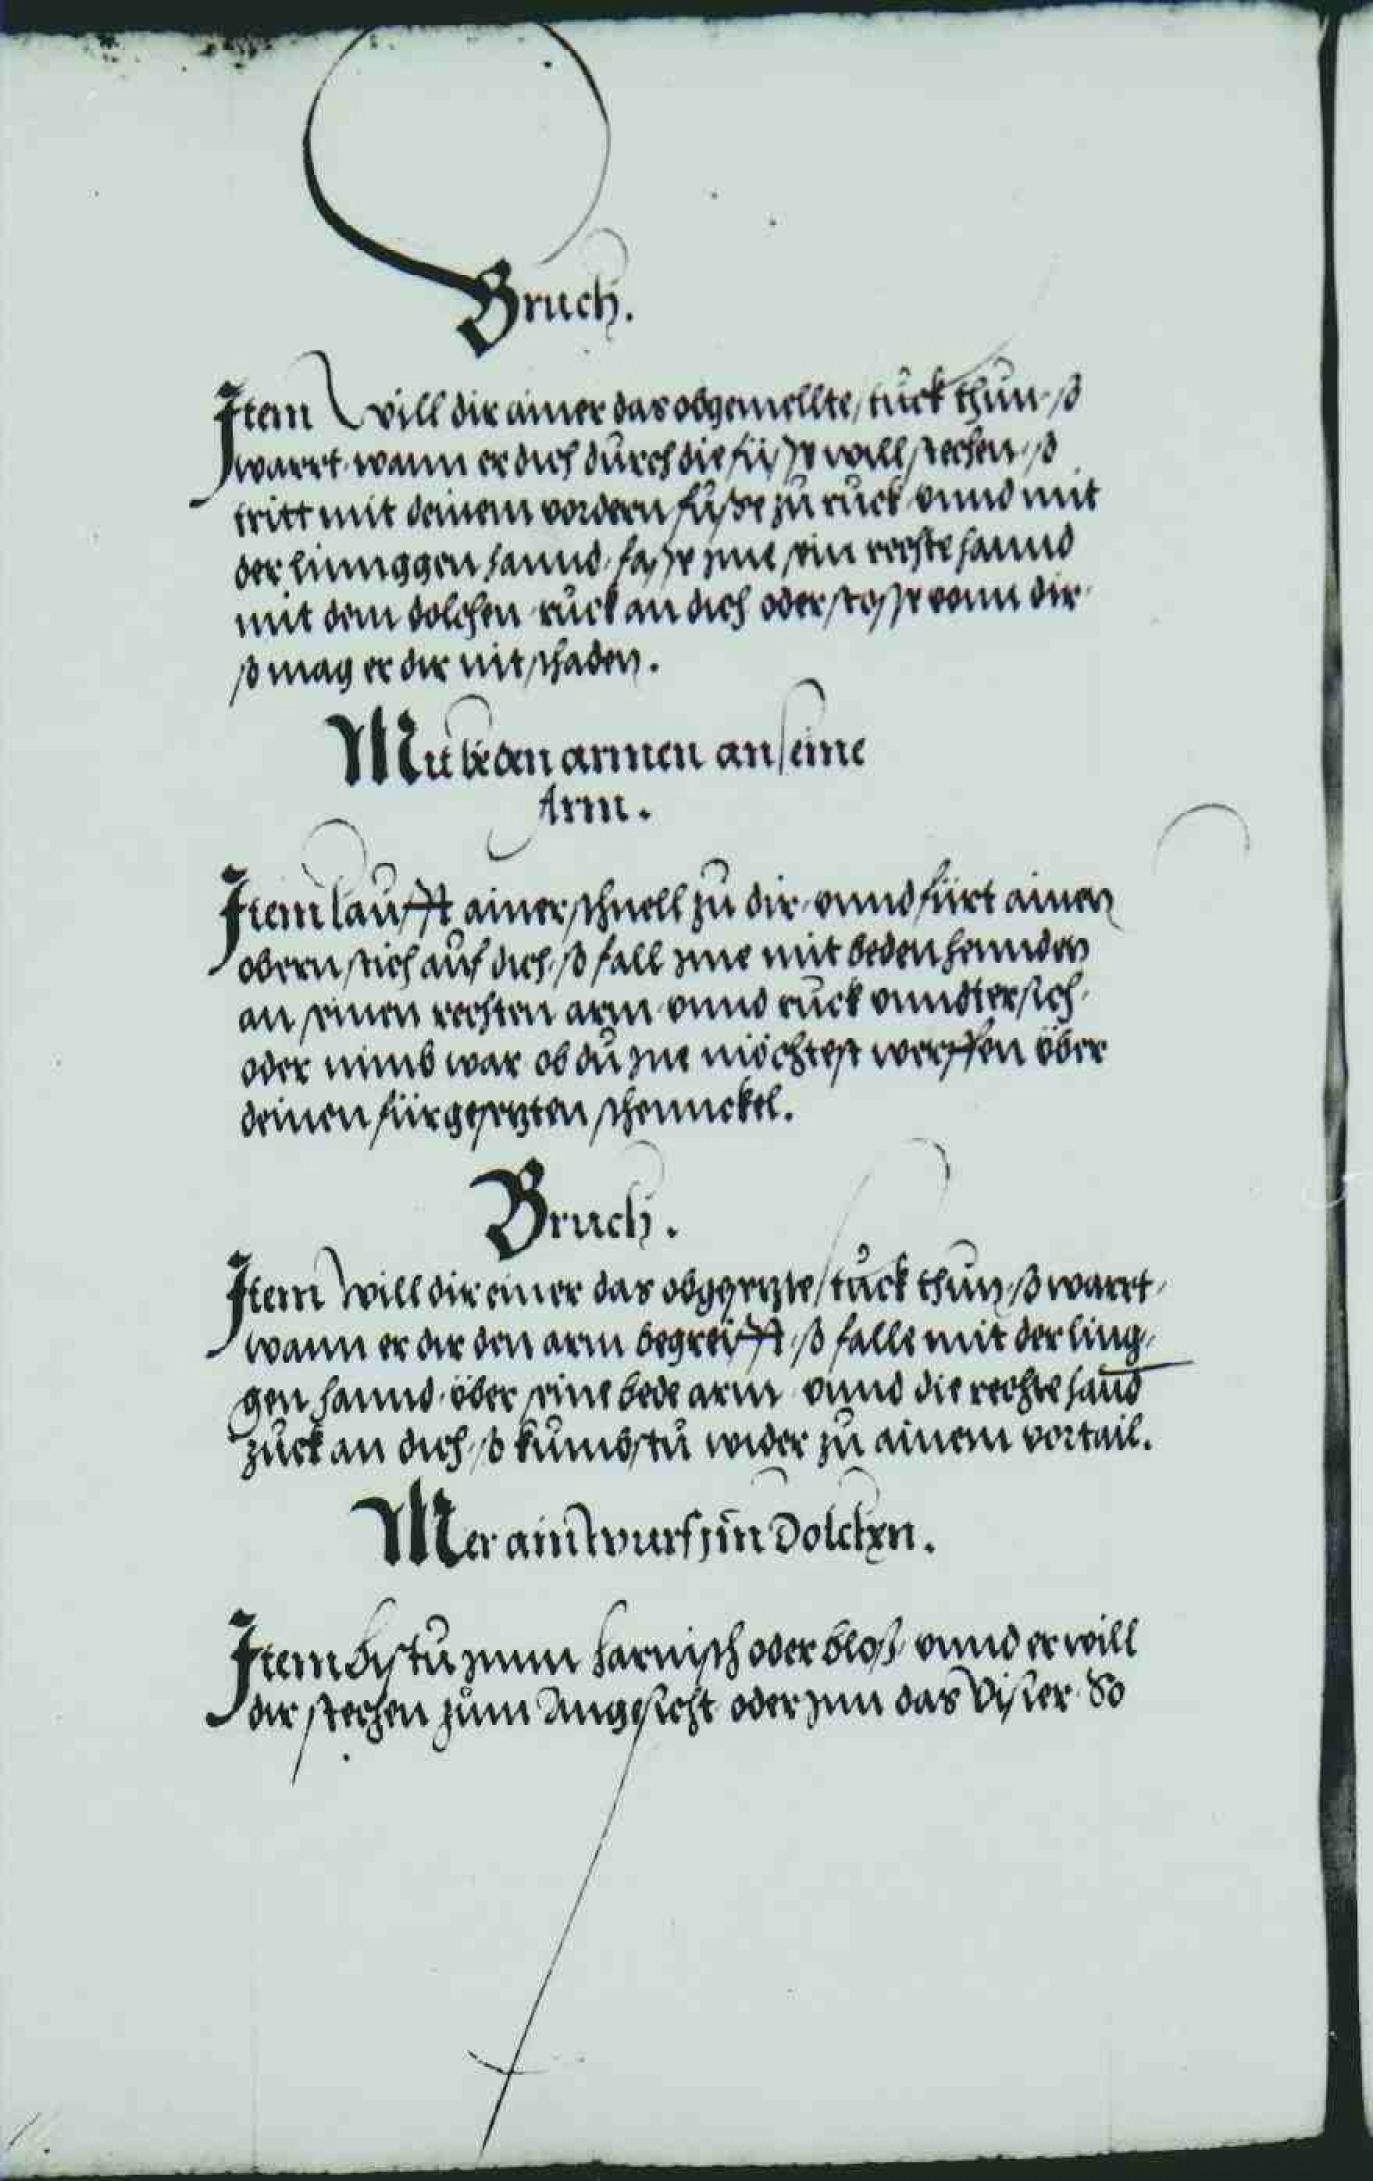 Bruch.
Item Will dir ainer das obgemellte stuck thun, so
warrt, wann er dich durch die füsse will stechen, so
tritt mit deinem vordern fusse zu ruck, vnnd mit
der linnggen hannd, fasse jme sein rechte hannd
mit dem dolchen, ruck an dich oder stosse vonn dir,
so mag er dir nit schaden.
Mit beden armen an seine
Arm.
Item laufft ainer schnell zu dir, vnnd fürt ainen
obern stich auf dich, so fall jme mit beden hennden
an seinen rechten arm, vnnd ruck vnndtersich,
oder nimb war ob du jne möchtest werffen über
deinen fürgesetzten schennckel.
Bruch.
Item will dir einer das obgesetzte stuck thun, so warrt,
wann er dir den arm begreifft, so falle mit der ling,
gen hannd, über seine bede arm, vnnd die rechte hannd
zuck an dich, so kumbstu wider zu ainem vortail.
Mer ain wurf jm Dolchen.
Item bistu jnnn harnisch oder bloß, vnnd er will
dir stechen zum Angesicht oder jnn das Visier. So